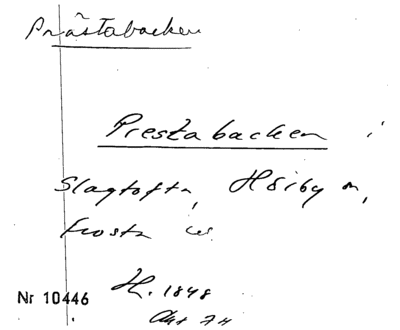 Prästabacken
Prestabacken i
Slagtofta, Hörby sn,
Frosta
Nr 10446 H. 1848
Akt 74